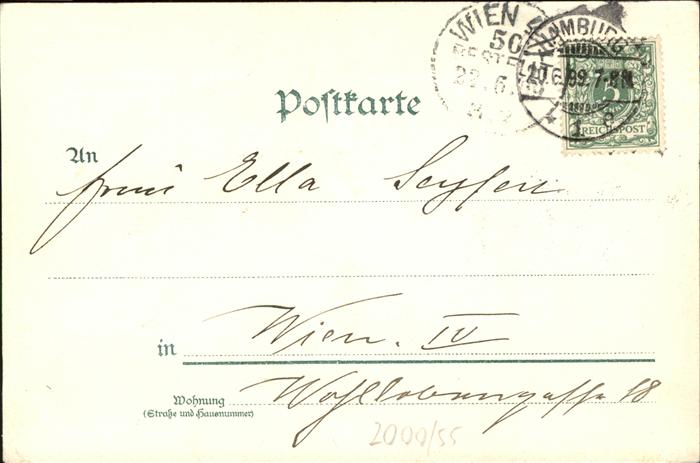 WIEN
50
BESTELLT
22.6
HAMBURG
20.6.99.7-8N.
* 1 e
5
REICHSPOST
Postkarte
An
Ella
in Wien. IV
Wohnung Wohllebengasse 18
(Straße und Hausnummer)
2000/55